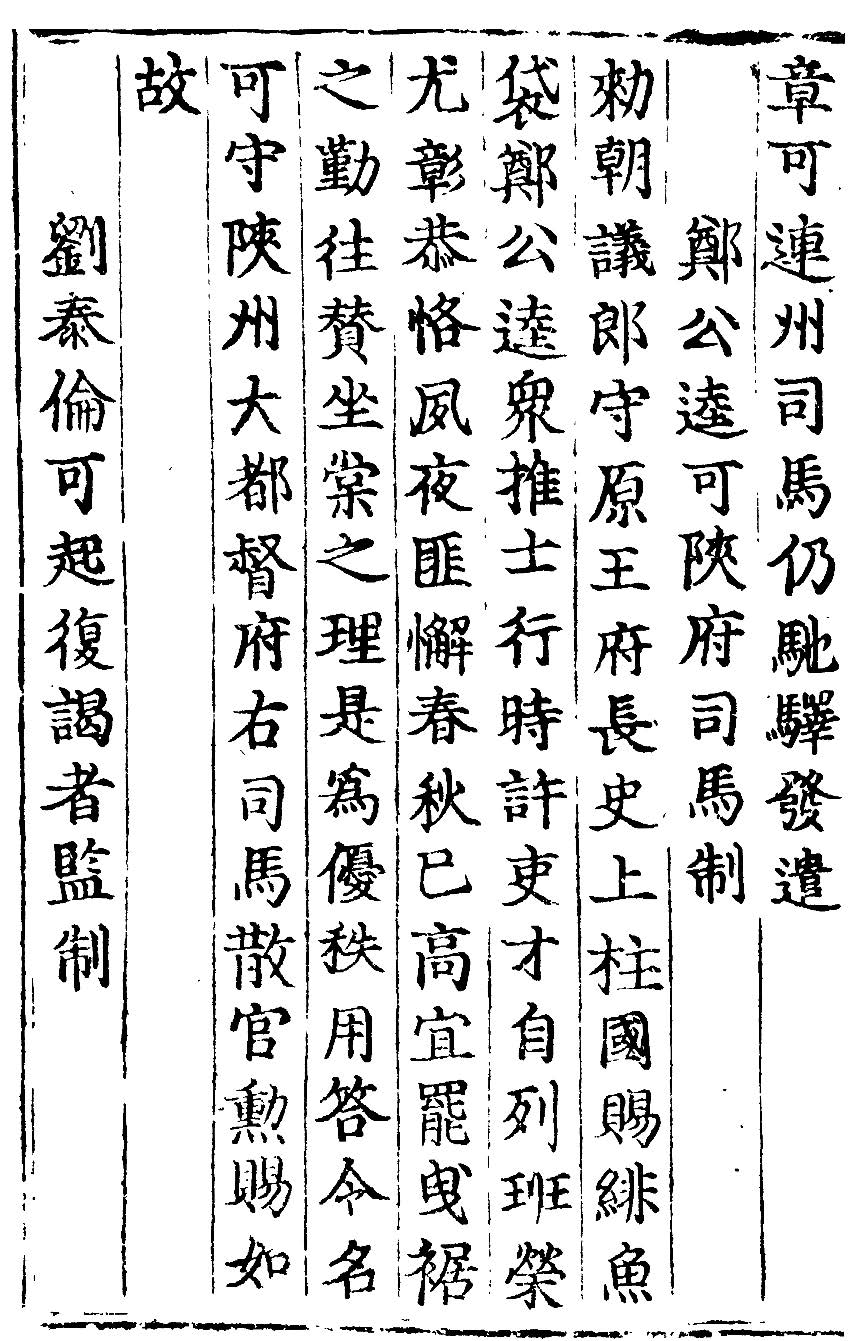 章可連州司馬仍馳驛發遣
鄭公逵可陝府司馬制
勑朝議郎守原王府長史上柱國賜緋魚
袋鄭公逵衆推士行時許吏才自列班榮
尤彰恭恪夙夜匪懈春秋已高宜罷曳裾
之勤往贊坐棠之理是爲優秩用答令名
可守陝州大都督府右司馬散官勲賜如
故
劉泰倫可起復謁者監制